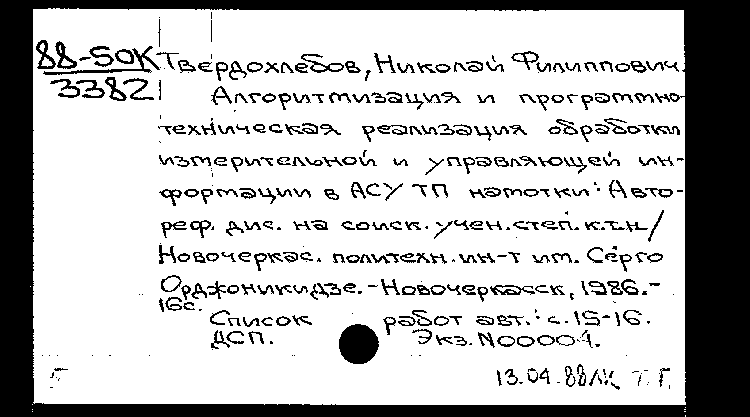 88-50К
3382
Твердохлебов, Николай Филиппович.
Алгоритмизация и программно-
техническая реализация обработки
измерительной и управляющей ин-
формации в АСУ ТП намотки: Авто-
реф. дис. на соиск. учен. степ. к.т.н/
Новочеркас. политехн. ин-т им. Серго
Орджоникидзе. - Новочеркасск, 1986. -
16с.
Список работ авт.: с. 15-16.
ДСП. Экз. N00004.
13.04.88ЛК Т.Г.